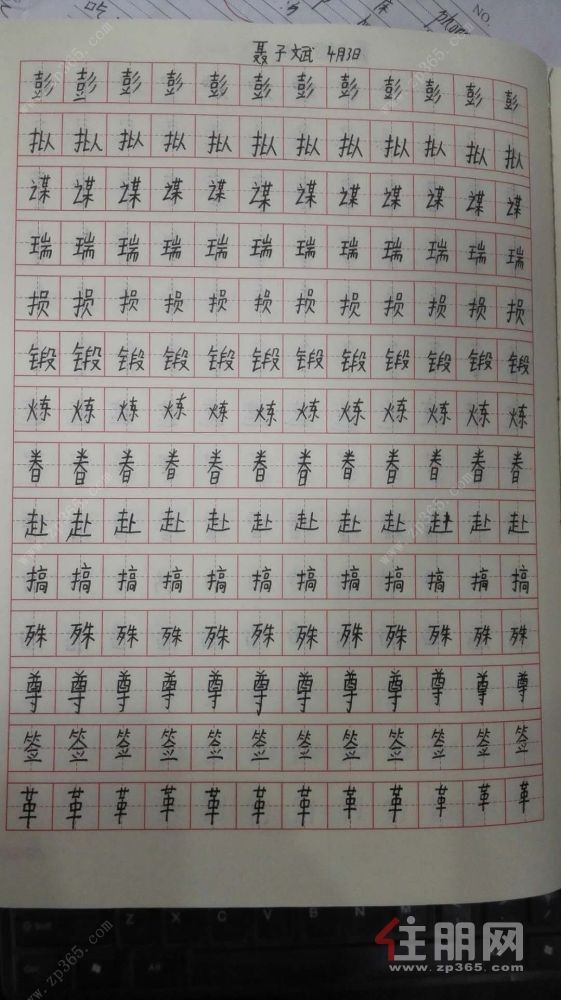 NO.
聂子斌 4月3日
彭 彭 彭 彭 彭 彭 彭 彭 彭 彭 彭 彭
拟 拟 拟 拟 拟 拟 拟 拟 拟 拟 拟 拟
谋 谋 谋 谋 谋 谋 谋 谋 谋 谋 谋 谋
瑞 瑞 瑞 瑞 瑞 瑞 瑞 瑞 瑞 瑞 瑞 瑞
损 损 损 损 损 损 损 损 损 损 损 损
锻 锻 锻 锻 锻 锻 锻 锻 锻 锻 锻 锻
炼 炼 炼 炼 炼 炼 炼 炼 炼 炼 炼 炼
眷 眷 眷 眷 眷 眷 眷 眷 眷 眷 眷 眷
赴 赴 赴 赴 赴 赴 赴 赴 赴 赴 赴 赴
搞 搞 搞 搞 搞 搞 搞 搞 搞 搞 搞 搞
殊 殊 殊 殊 殊 殊 殊 殊 殊 殊 殊 殊
尊 尊 尊 尊 尊 尊 尊 尊 尊 尊 尊 尊
签 签 签 签 签 签 签 签 签 签 签 签
革 革 革 革 革 革 革 革 革 革 革 革
Z X C V B N M
住朋网
www.zp365.com